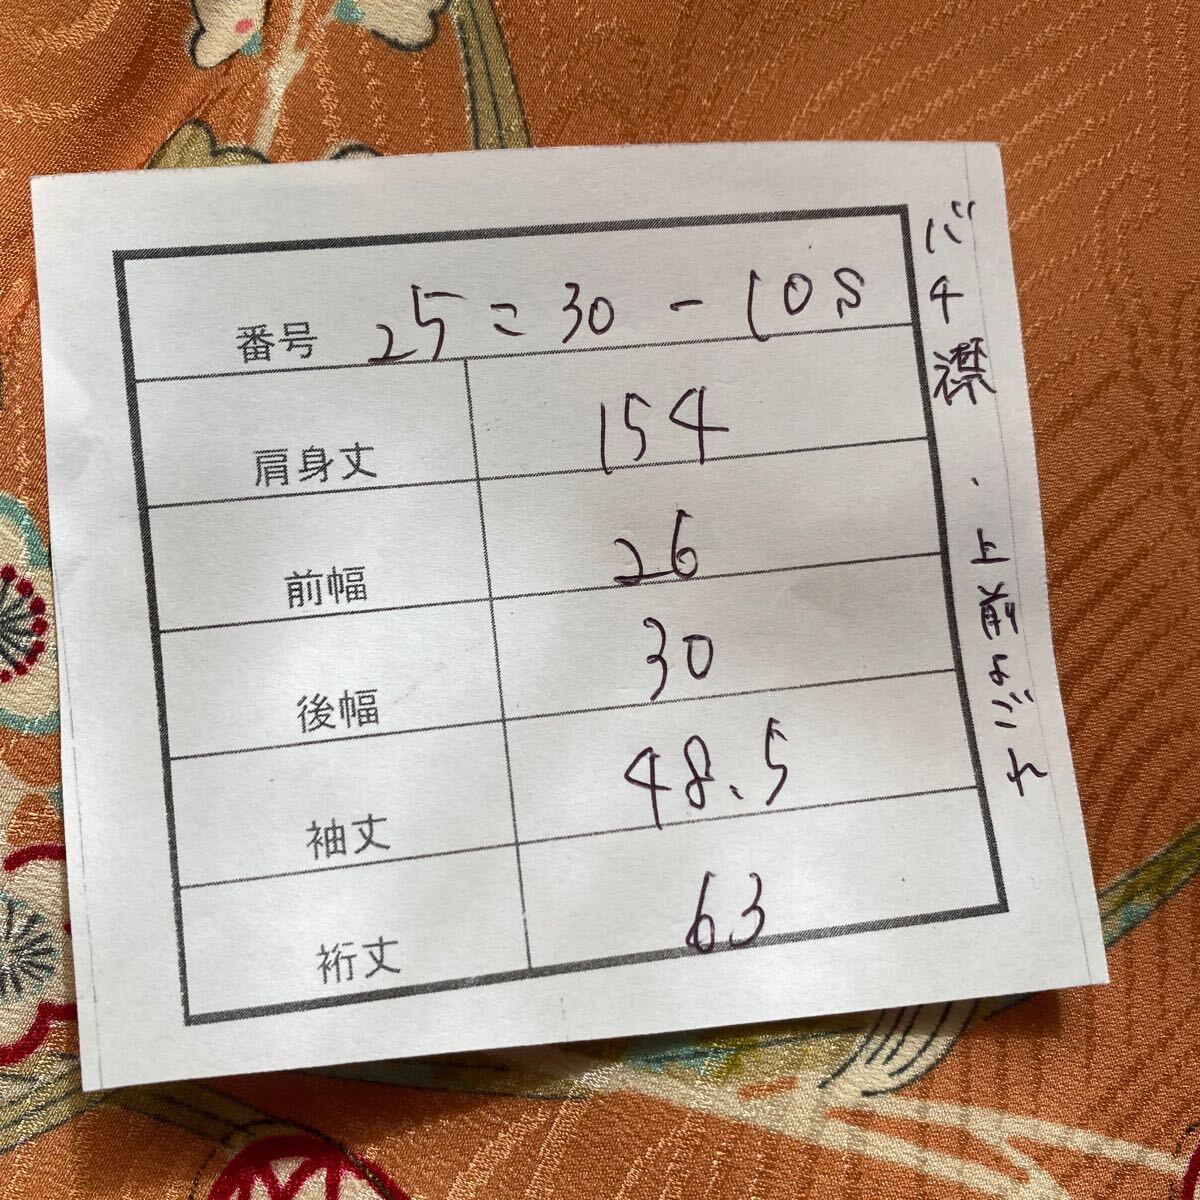 番号 25ニ30-108
肩身丈 154
前幅 26
後幅 30
袖丈 48.5
裄丈 63
バチ襟・上前よごれ